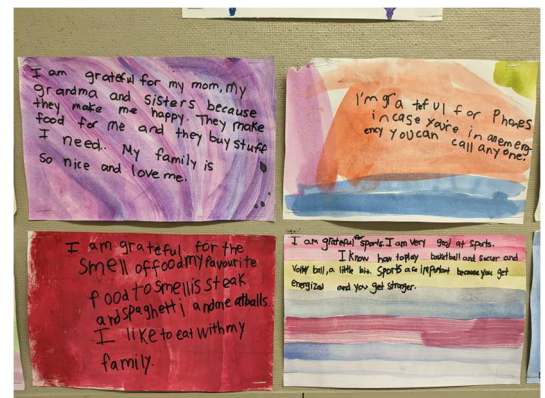 I am grateful for my mom, my
grandma and sisters because
they make me happy. They make
food for me and they buy stuff
I need. My family is
so nice and love me.
I'm grateful for Phones
in case you're in an emerg-
ency you can call anyone.
I am grateful for the
smell of food my favourite
food to smell is steak
and spaghetti and meatballs.
I like to eat with my
family.
I am grateful for sports. I am very good at sports.
I know how to play basketball and soccer and
Volley ball, a little bit. Sports are important because you get
energized and you get stronger.